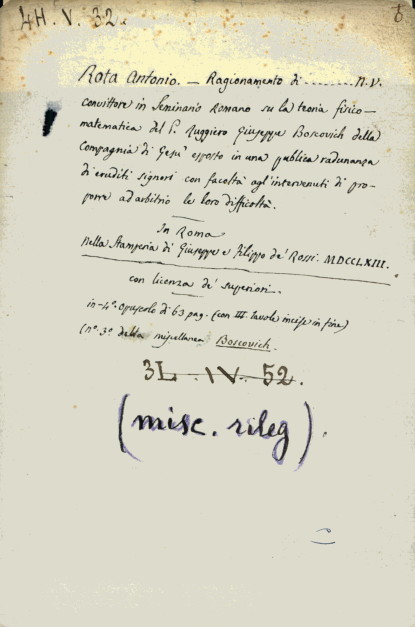 4H. V. 32.
Rota Antonio. — Ragionamento di ........... N.V.
convittore in Seminario Romano su la teoria fisico-
matematica del P. Ruggiero Giuseppe Boscovich della
Compagnia di Gesù esposto in una publica radunanza
di eruditi signori con facoltà agl'intervenuti di pro-
porre ad arbitrio le loro difficoltà.
In Roma
Nella Stamperia di Giuseppe e Filippo de' Rossi. MDCCLXIII.
con licenza de' superiori.
in-4º. opuscolo di 63 pag. (con III. tavole incise in fine)
(nº. 3º. della miscellanea Boscovich.
3L . IV . 52.
(misc. rileg).